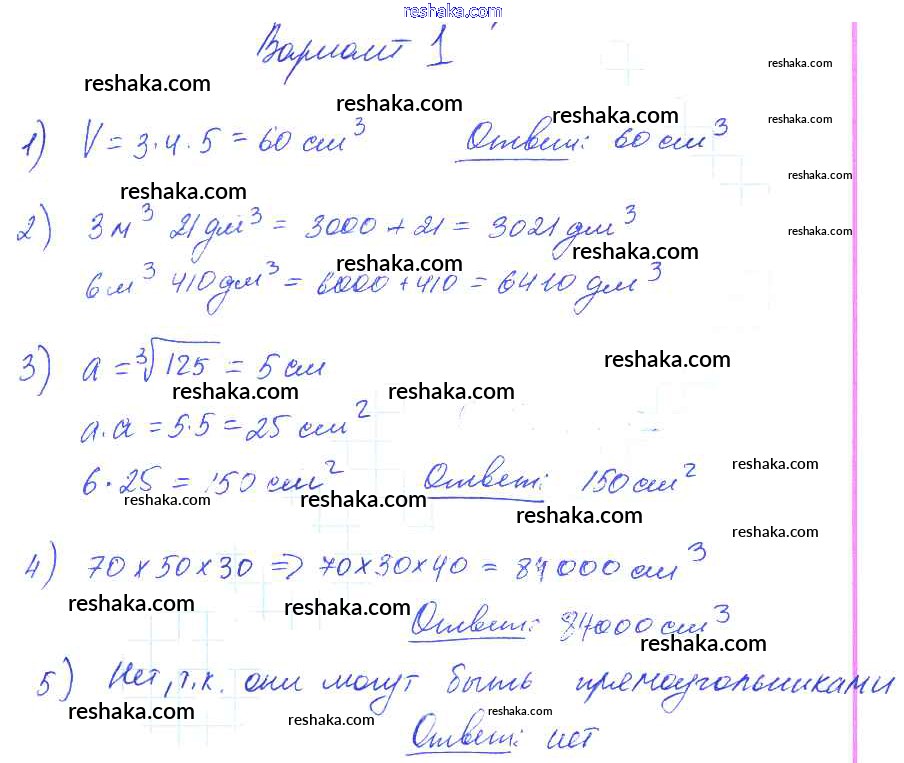 reshaka.com
Вариант 1
reshaka.com
reshaka.com
reshaka.com
reshaka.com
reshaka.com
1) V = 3·4·5 = 60 см³ Ответ: 60 см³
reshaka.com
reshaka.com
2) 3 м³ 21 дм³ = 3000 + 21 = 3021 дм³
reshaka.com
reshaka.com
reshaka.com
6 м³ 410 дм³ = 6000 + 410 = 6410 дм³
3) a = ³√125 = 5 см
reshaka.com
reshaka.com
reshaka.com
a·a = 5·5 = 25 см²
reshaka.com
6·25 = 150 см² Ответ: 150 см²
reshaka.com
reshaka.com
reshaka.com
reshaka.com
4) 70×50×30 => 70×30×40 = 84000 см³
reshaka.com
reshaka.com
Ответ: 84000 см³
reshaka.com
5) Нет, т.к. они могут быть прямоугольниками
reshaka.com
reshaka.com
reshaka.com
Ответ: нет